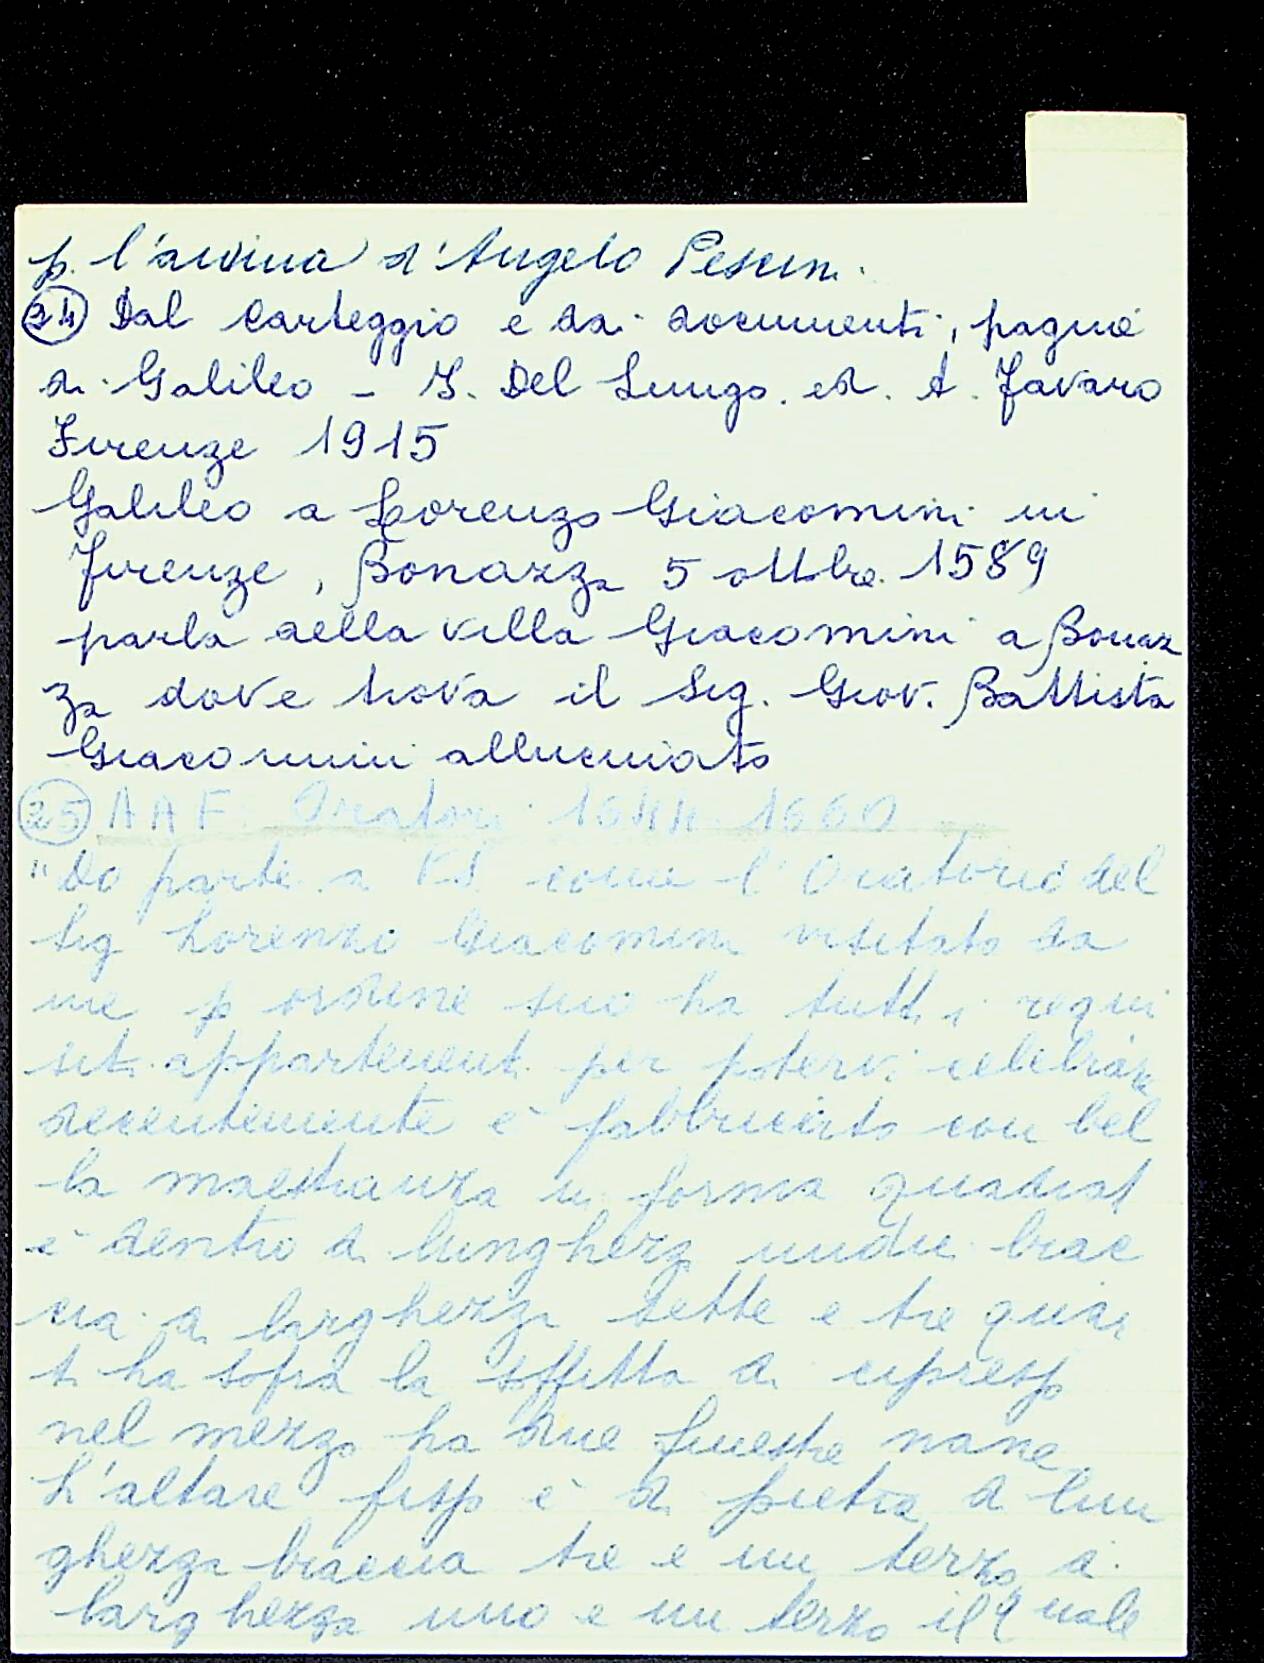 p. l'anima d'Angelo Pescin.
24 Dal carteggio e dai documenti, pagine
di Galileo - I. Del Lungo. ed. A. Favaro
Firenze 1915
Galileo a Lorenzo Giacomini in
Firenze, Bonazza 5 ottbre. 1589
parla della villa Giacomini a Bonaz
za dove trova il Sig. Giov. Battista
Giacomini alluciniato
25 AAF. Oratori 1644 1660
"Do parte a V.S. come l'Oratorio del
Sig Lorenzo Giacomini visitato da
me p ordine suo ha tutti i requi
siti appartenenti per potervi celebrare
decentemente è fabbricato con bel
la maestranza in forma quadrat
è dentro di lunghezza undici brac
cia di larghezza sette e tre quar
ti ha sopra la soffitta di cipresso
nel mezzo ha due finestre nane
L'altare fisso è di pietra di lun
ghezza braccia tre e un terzo di
larghezza uno e un terzo il quale